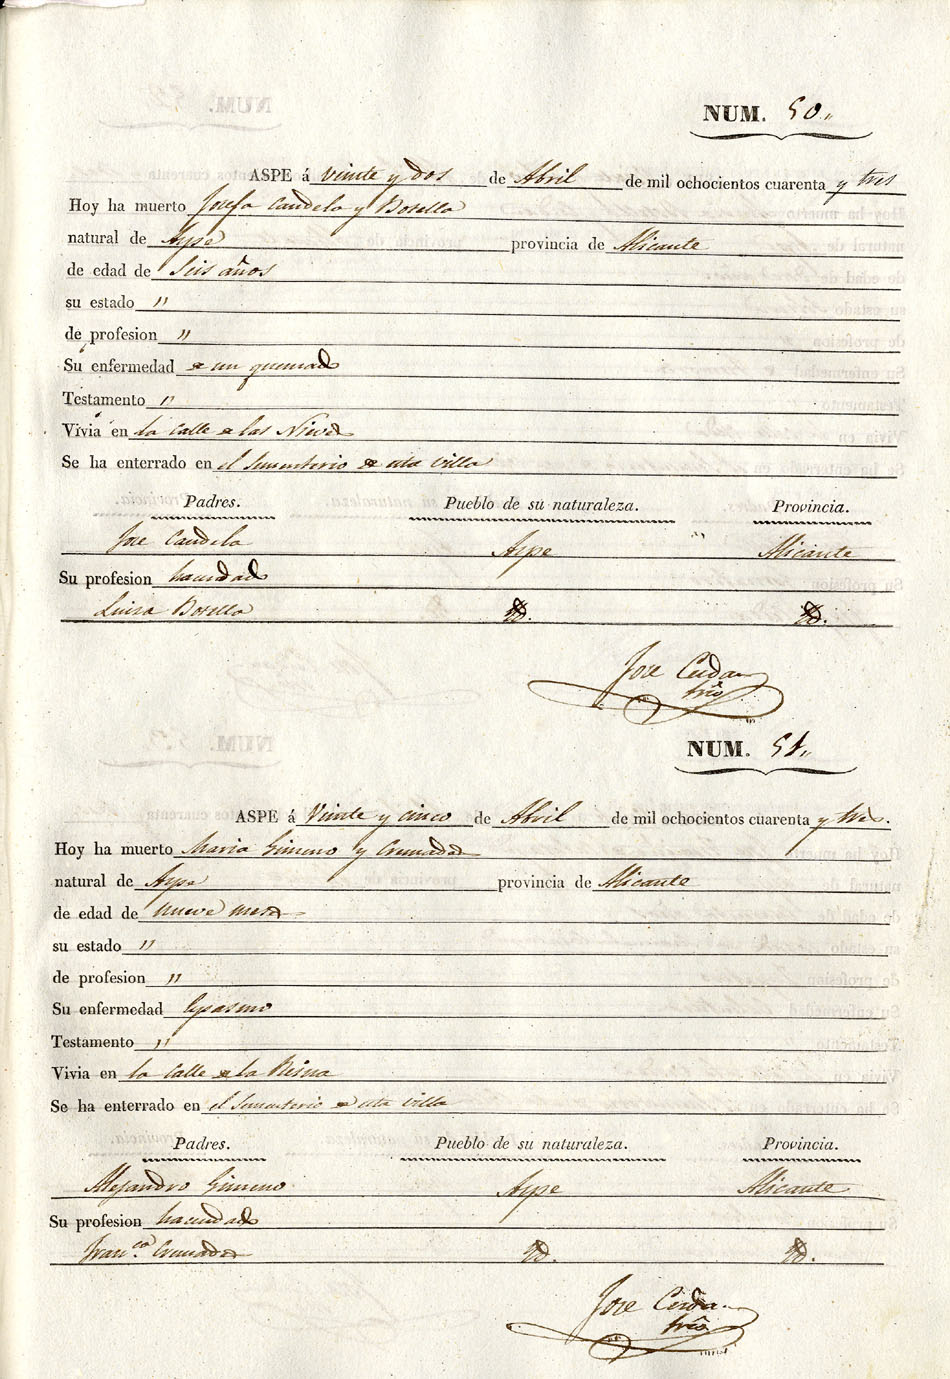 NUM. 50,,
ASPE á Vinte y dos de Abril de mil ochocientos cuarenta y tres
Hoy ha muerto Josefa Candela y Botella
natural de Aspe provincia de Alicante
de edad de Seis años
su estado "
de profesion "
Su enfermedad de un quemado
Testamento "
Vivia en la Calle de las Nieves
Se ha enterrado en el Sementerio de esta villa
Padres. Pueblo de su naturaleza. Provincia.
Jose Candela Aspe Alicante
Su profesion hacendado
Luisa Botella Yd. Yd.
Jose Cerda
srio
NUM. 51,,
ASPE á Vinte y cinco de Abril de mil ochocientos cuarenta y tres.
Hoy ha muerto Maria Gimeno y Cremades
natural de Aspe provincia de Alicante
de edad de nueve meses
su estado "
de profesion "
Su enfermedad Espasmo
Testamento "
Vivia en la Calle de la Reina
Se ha enterrado en el Sementerio de esta villa
Padres. Pueblo de su naturaleza. Provincia.
Alejandro Gimeno Aspe Alicante
Su profesion hacendado
Fran.ca Cremades Yd. Yd.
Jose Cerda
srio